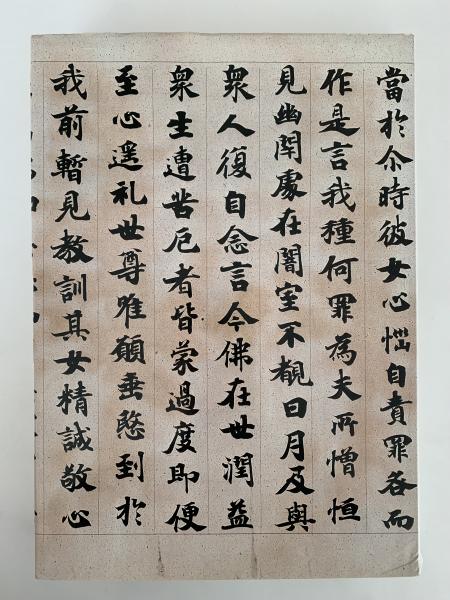 當於尒時彼女心惱自責罪咎而
作是言我種何罪為夫所憎恒
見幽閇處在闇室不覩日月及與
衆人復自念言今佛在世潤益
衆生遭苦厄者皆蒙過度即便
至心遥礼世尊唯願垂愍到於
我前暫見教訓其女精誠敬心